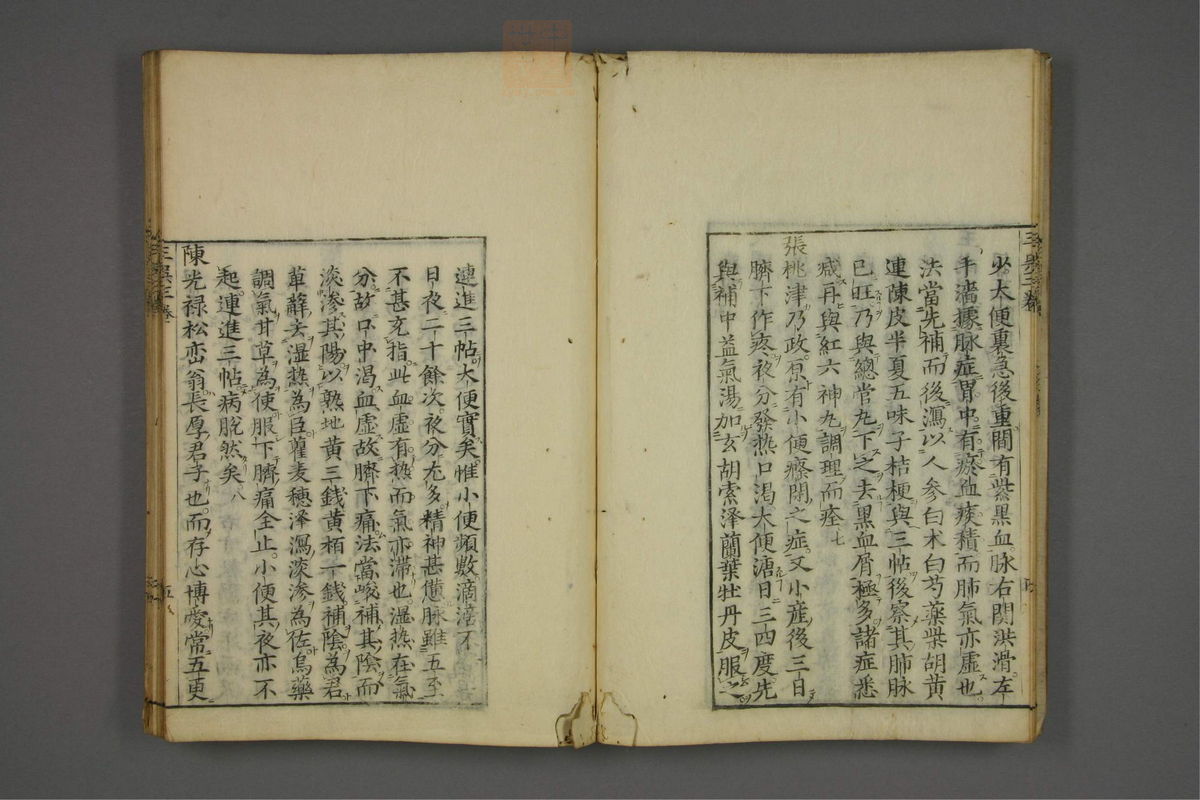 少大便裏急後重間有紫黒血脉右関洪滑左
手濇據脉症胃中有瘀血痰積而肺氣亦虚也
法當先補而後瀉以人参白术白芍藥柴胡黄
連陳皮半夏五味子桔梗與三帖後察其肺脉
已旺乃與總管丸下之去黒血屑極多諸症悉
减再與紅六神丸調理而痊
張桃津乃政原有小便癃閉之症又小産後三日
臍下作疼夜分發热口渴大便溏日三四度先
與補中益氣湯加玄胡索泽蘭葉牡丹皮服之
連進三帖大便實矣惟小便頻數滴瀝不
日夜二十餘次夜分尤多精神甚憊脉雖五至
不甚充指此血虚有热而氣亦滞也湿热在氣
分故口中渴血虚故臍下痛法當峻補其陰而
淡渗其陽以熟地黄三錢黄栢一錢補陰為君
萆薢去湿热為臣瞿麦穂泽瀉淡渗為佐烏藥
調氣甘草為使服下臍痛全止小便其夜亦不
起連進三帖病脱然矣
陳光禄松峦翁長厚君子也而存心博愛常五更